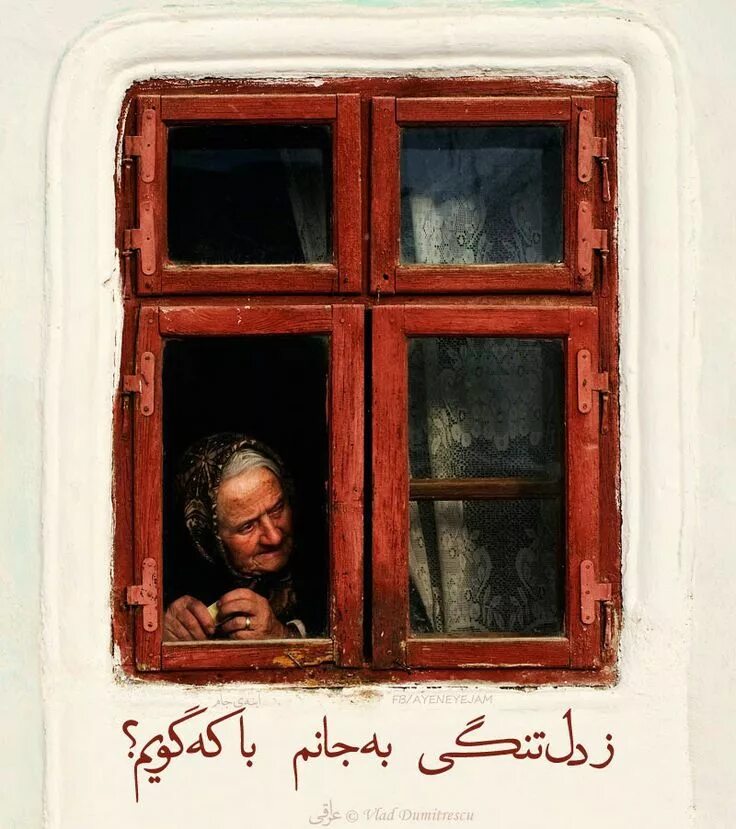 آینه‌ی جام
FB/AYENEYEJAM
ز دل‌تنگی به‌جانم با که‌گویم؟
عراقی © Vlad Dumitrescu